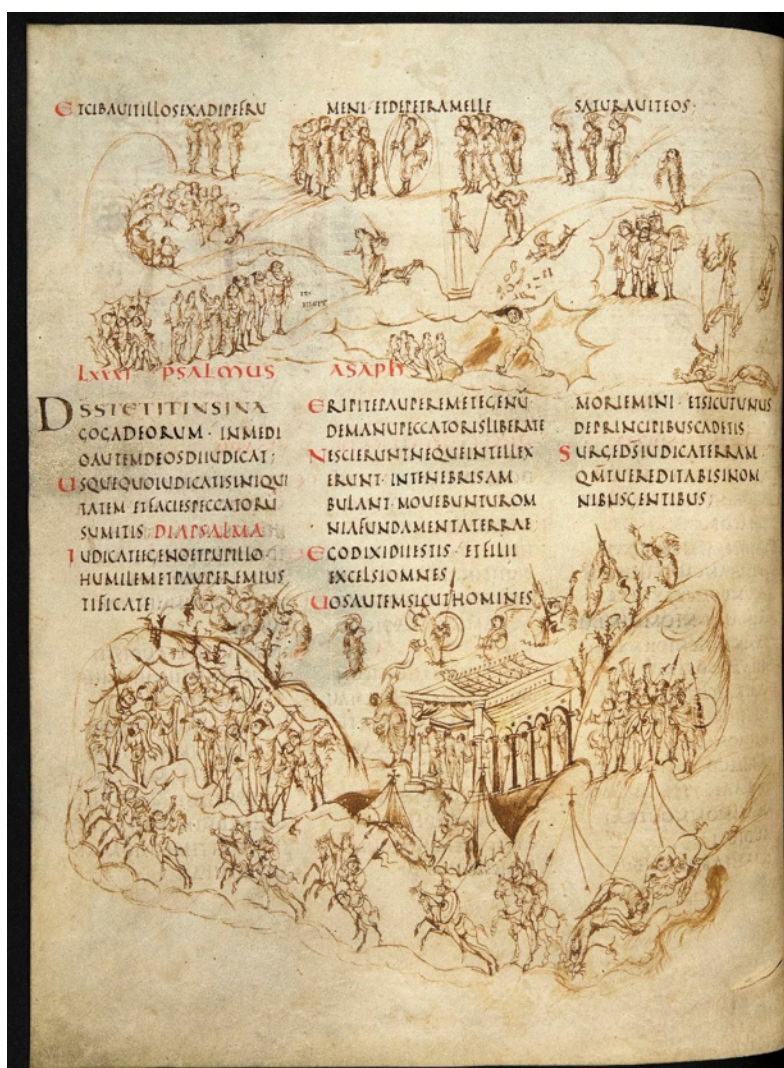 ETCIBAUITILLOSEXADIPEFRU
MENI · ETDEPETRAMELLE
SATURAUITEOS ·
LXXXI PSALMUS ASAPH
DSSTETITINSINA
GOGADEORUM · INMEDI
OAUTEMDEOSDIIUDICAT ;
USQUEQUOIUDICATISINIQUI
TATEM · ETFACIESPECCATORU
SUMITIS DIAPSALMA
IUDICATEEGENOETPUPILLO ·
HUMILEMETPAUPEREMIUS
TIFICATE
ERIPITEPAUPEREMETEGENU ·
DEMANUPECCATORISLIBERATE
NESCIERUNTNEQUEINTELLEX
ERUNT · INTENEBRISAM
BULANT · MOUEBUNTUROM
NIAFUNDAMENTATERRAE
EGODIXIDIIESTIS · ETFILII
EXCELSIOMNES
UOSAUTEMSICUTHOMINES
MORIEMINI · ETSICUTUNUS
DEPRINCIPIBUSCADETIS
SURGEDSIUDICATERRAM ·
QMTUEREDITABISINOM
NIBUSGENTIBUS ;